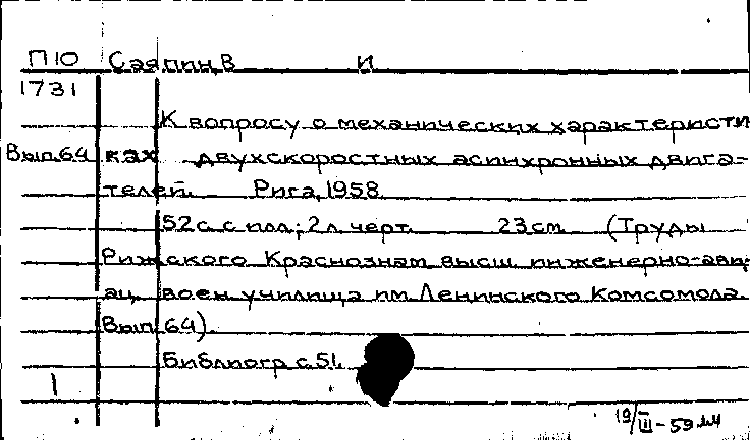 П10 Саяпин, В И
1731
К вопросу о механических характеристи
Вып.64 ках двухскоростных асинхронных двига-
телей. Рига, 1958
52 с. с илл.; 2 л. черт. 23 см (Труды
Рижского Краснознам. высш. инженерно-ави-
ац. воен училища им Ленинского Комсомола
Вып. 64).
Библиогр с 51.
1
19/III-59